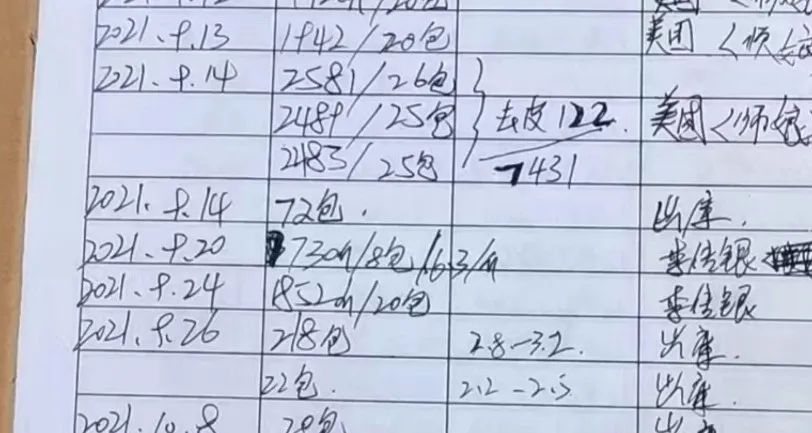 2021.9.13 1942/20包 美团
2021.9.14 2581/26包
2489/25包 去皮122. 美团
2483/25包 7431
2021.9.14 72包. 出库.
2021.9.20 730斤/8包/6.3/斤 李传银
2021.9.24 1852斤/20包 李传银
2021.9.26 218包 2.8-3.2. 出库.
22包. 2.2-2.5 出库.
2021.10.8